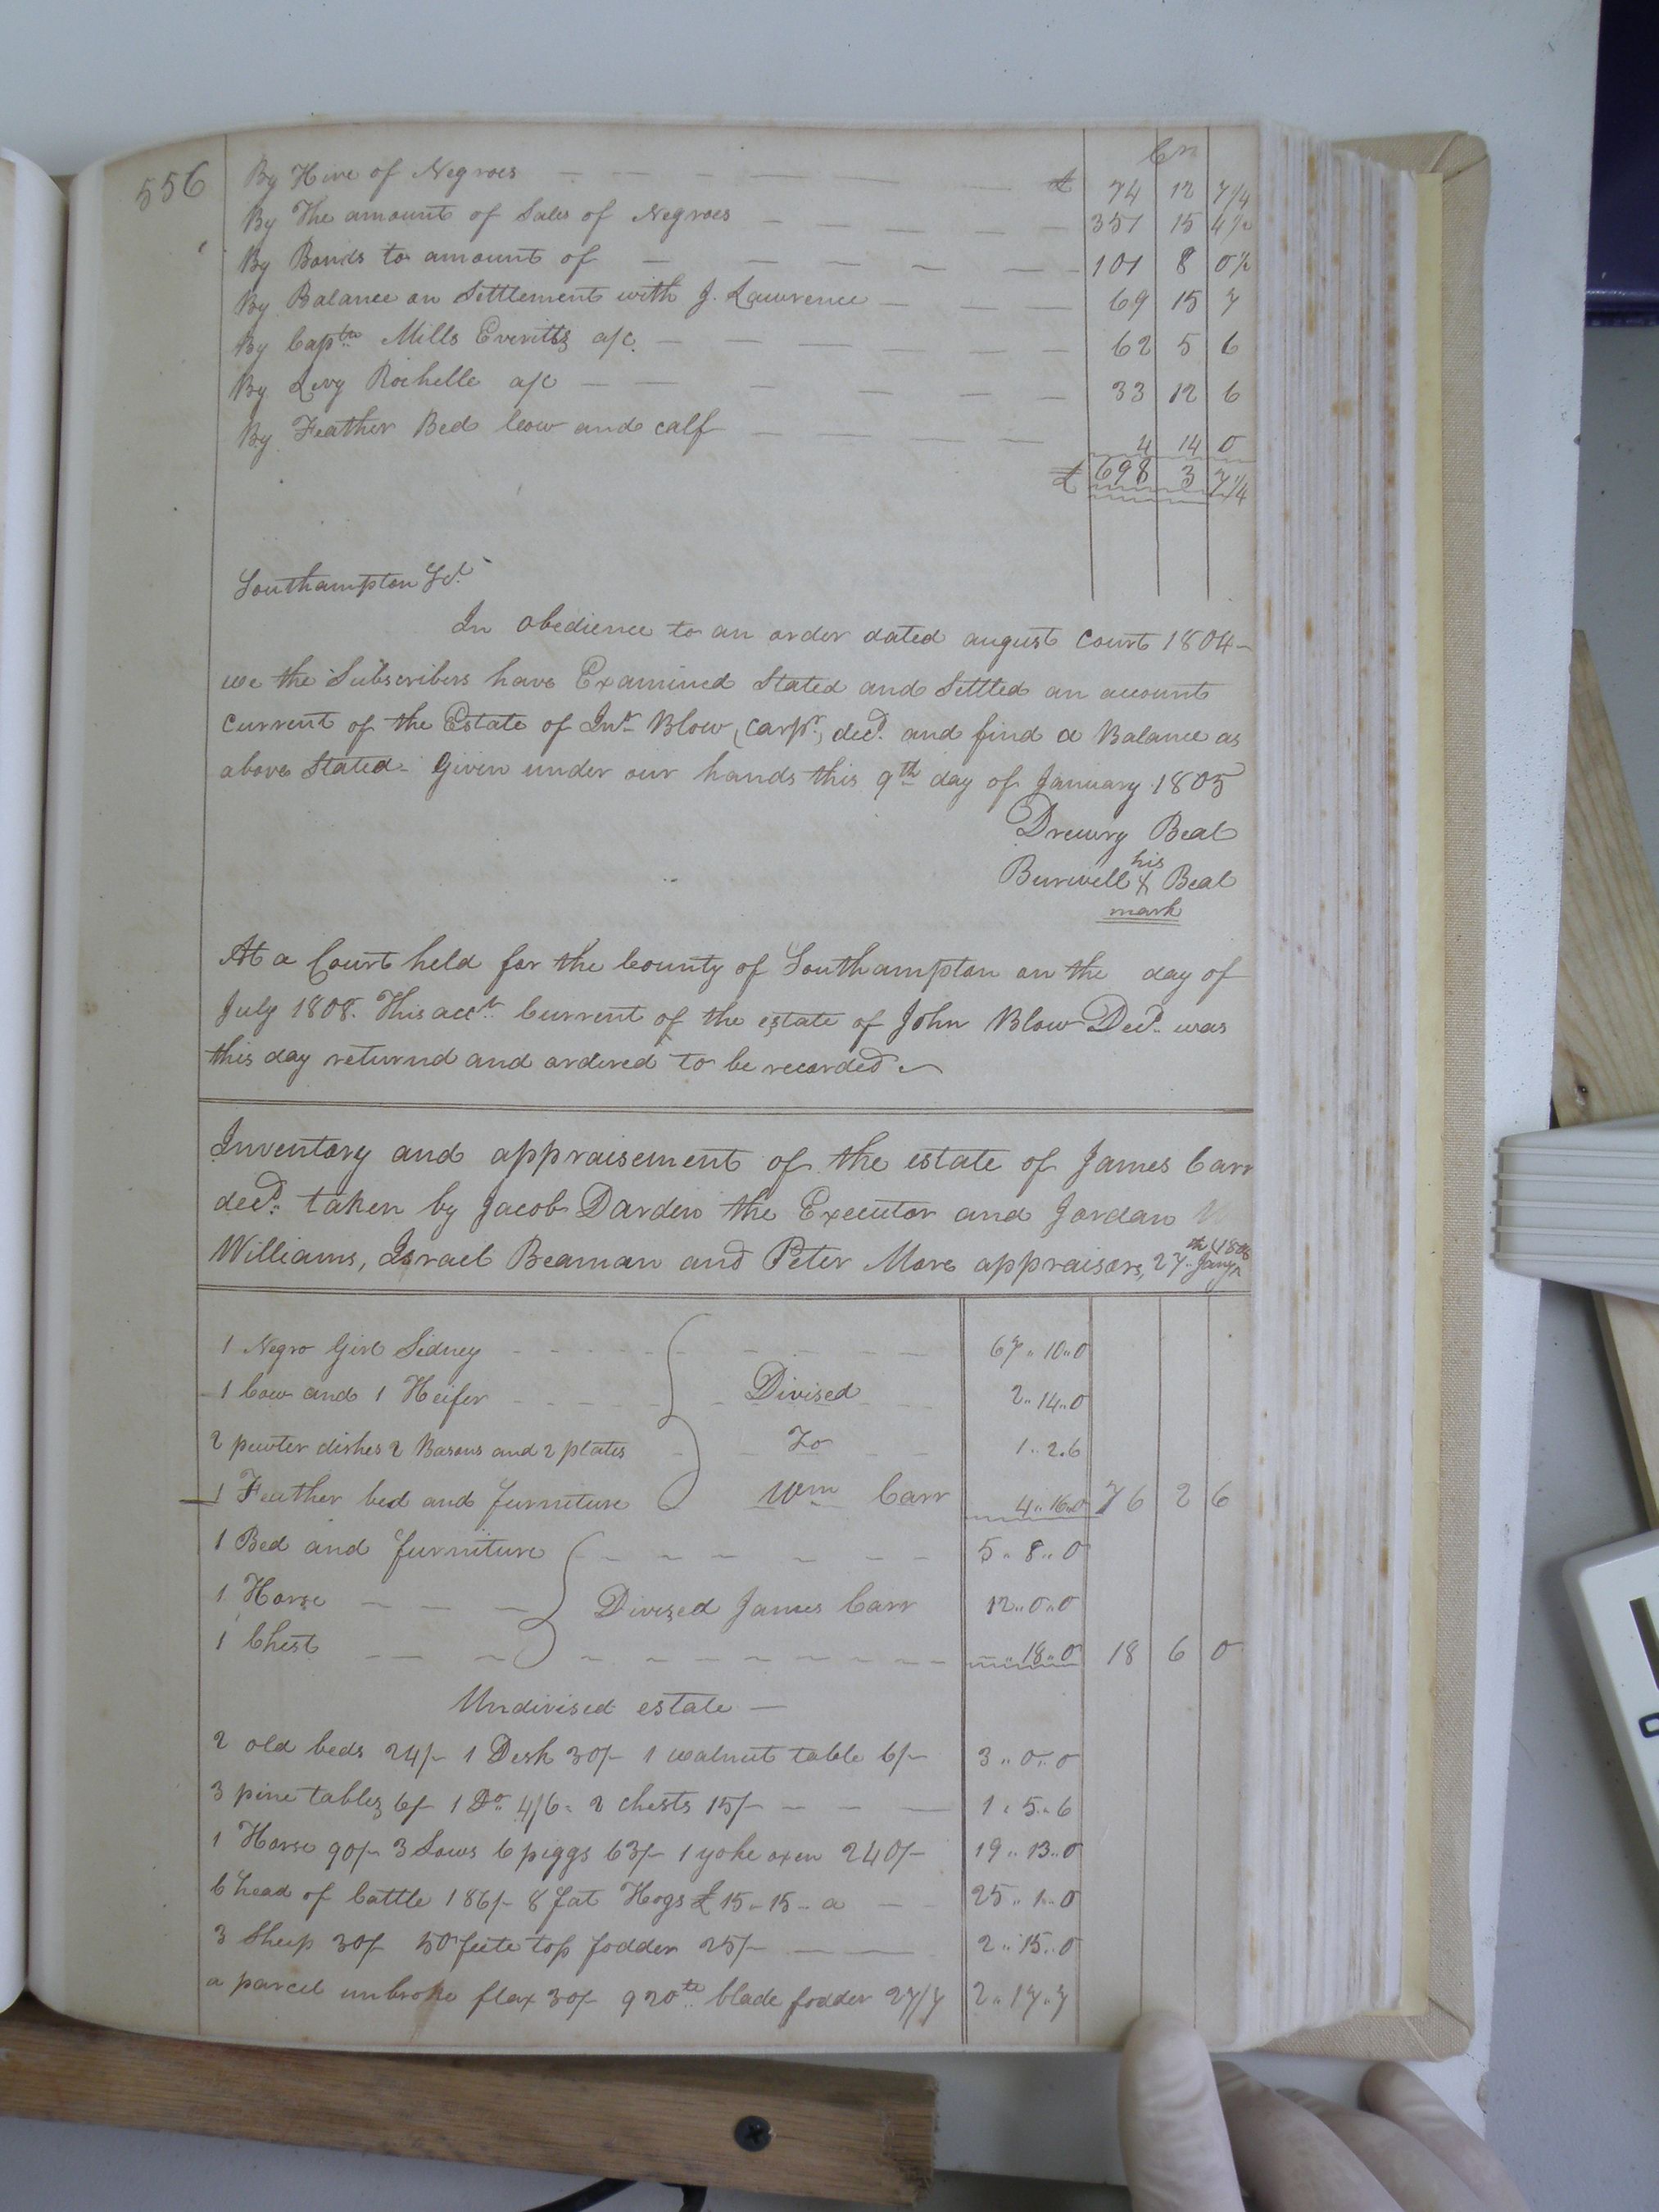 556
Cr
By Hire of Negroes £ 74 12 7 1/4
By The amount of Sales of Negroes 351 15 4 1/2
By Bonds to amount of 101 8 0 1/2
By Balance on Settlement with J. Lawrence 69 15 7
By Captn Mills Everitts a/c. 62 5 6
By Levy Rochelle a/c 33 12 6
By Feather Bed Cow and calf 4 14 0
£ 698 3 7 1/4
Southampton Sct.
In obedience to an order dated august Court 1804
we the Subscribers have Examined Stated and Settled an account
Current of the Estate of Jno. Blow, (Carpr.) decd. and find a Balance as
above Stated. Given under our hands this 9th day of January 1805
Drewry Beal
his
Burwell X Beal
mark
At a Court held for the County of Southampton on the day of
July 1808. This acct. Current of the estate of John Blow Decd. was
this day returnd and ordered to be recorded
Inventory and appraisement of the estate of James Carr
decd. taken by Jacob Darden the Executor and Jordan
Williams, Israel Beaman and Peter More appraisors, 27th Jany 1806
1 Negro Girl Sidney 67..10..0
1 Cow and 1 Heifer Divised 2..14..0
2 pewter dishes 2 Basons and 2 plates To 1..2.6
1 Feather bed and furniture Wm Carr 4..16..0 76 2 6
1 Bed and furniture 5..8..0
1 Horse Divised James Carr 12..0..0
1 Chest ..18..0 18 6 0
Undivised estate
2 old beds 24/- 1 Desk 30/- 1 walnut table 6/- 3..0..0
3 pine tables 6/- 1 Do. 4/6. 2 chests 15/- 1.5..6
1 Horse 90/- 3 Sows 6 piggs 63/- 1 yoke oxen 240/- 19..13..0
6 head of Cattle 186/- 8 fat Hogs £15..15..0 25..1..0
3 Sheep 30/- 50 feete top fodder 25/- 2..15..0
a parcel unbroke flax 30/- 920th blade fodder 27/7 2..17..7